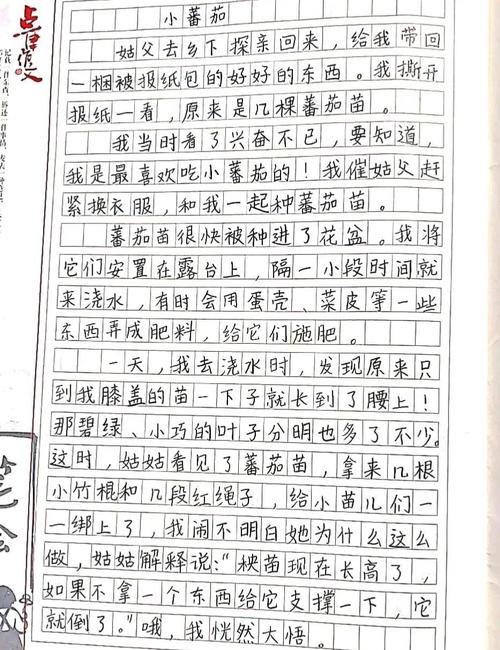 小蕃茄
姑父去乡下探亲回来，给我带回
一捆被报纸包的好好的东西。我撕开
报纸一看，原来是几棵蕃茄苗。
我当时看了兴奋不已，要知道，
我是最喜欢吃小蕃茄的！我催姑父赶
紧换衣服，和我一起种蕃茄苗。
蕃茄苗很快被种进了花盆。我将
它们安置在露台上，隔一小段时间就
来浇水，有时会用蛋壳、菜皮等一些
东西弄成肥料，给它们施肥。
一天，我去浇水时，发现原来只
到我膝盖的苗一下子就长到了腰上！
那碧绿、小巧的叶子分明也多了不少。
这时，姑姑看见了蕃茄苗，拿来几根
小竹棍和几段红绳子，给小苗儿们一
一绑上了，我闹不明白她为什么这么
做，姑姑解释说：“秧苗现在长高了，
如果不拿一个东西给它支撑一下，它
就倒了。”哦，我恍然大悟。